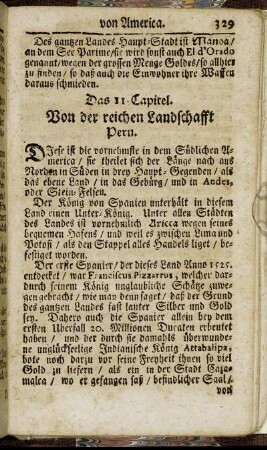 von America. 329
Des gantzen Landes Haupt-Stadt ist Manoa/
an dem See Parime/sie wird sonst auch El d'Orado
genannt/wegen der grossen Menge Goldes/so allhier
zu finden/ so daß auch die Einwohner ihre Waffen
daraus schmieden.
Das 11 Capitel.
Von der reichen Landschafft
Peru.
DIese ist die vornehmste in dem Südlichen A-
merica/ sie theilet sich der Länge nach aus
Norden in Süden in drey Haupt-Gegenden/ als
das ebene Land/ in das Gebürg/ und in Andes,
oder Stein-Felsen.
Der König von Spanien unterhält in diesem
Land einen Unter-König. Unter allen Städten
des Landes ist vornehmlich Aricca wegen seines
bequemen Hafens/ und weil es zwischen Lima und
Potosi/ als den Stappel alles Handels liget/ be-
festiget worden.
Der erste Spanier/ der dieses Land Anno 1525.
entdeckt/ war Franciscus Pizarrus, welcher dar-
durch seinem König unglaubliche Schätze zuwe-
gen gebracht/ wie man denn saget/ daß der Grund
des gantzen Landes fast lauter Silber und Gold
sey. Dahero auch die Spanier allein bey dem
ersten Uberfall 20. Millionen Ducaten erbeutet
haben/ und der durch sie damahls überwunde-
ne unglückseelige Indianische König Attabalipa,
bote noch darzu vor seine Freyheit ihnen so viel
Gold zu liefern/ als ein in der Stadt Caxa-
malca/ wo er gefangen saß/ befindlicher Saal/
von